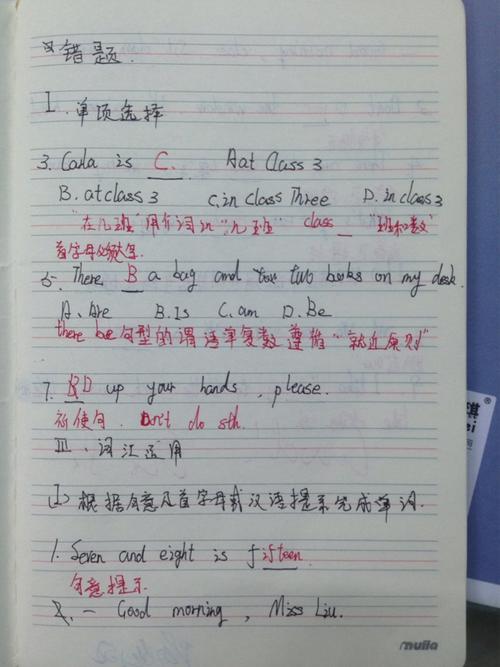 错题.
I. 单项选择
3. Carla is C. A at Class 3
B. at class 3 C. in Class Three D. in class 3
"在几班"用介词in "几班 class _ "班和数"
首字母必须大写.
5. There B a bag and two books on my desk.
A. Are B. Is C. am D. Be
there be句型的谓语单复数遵循"就近原则"
7. D up your hands, please.
祈使句. Don't do sth.
III. 词汇运用
(I) 根据句意及首字母或汉语提示完成单词.
1. Seven and eight is fifteen.
句意提示.
2. — Good morning, Miss Liu.
mulla
琪